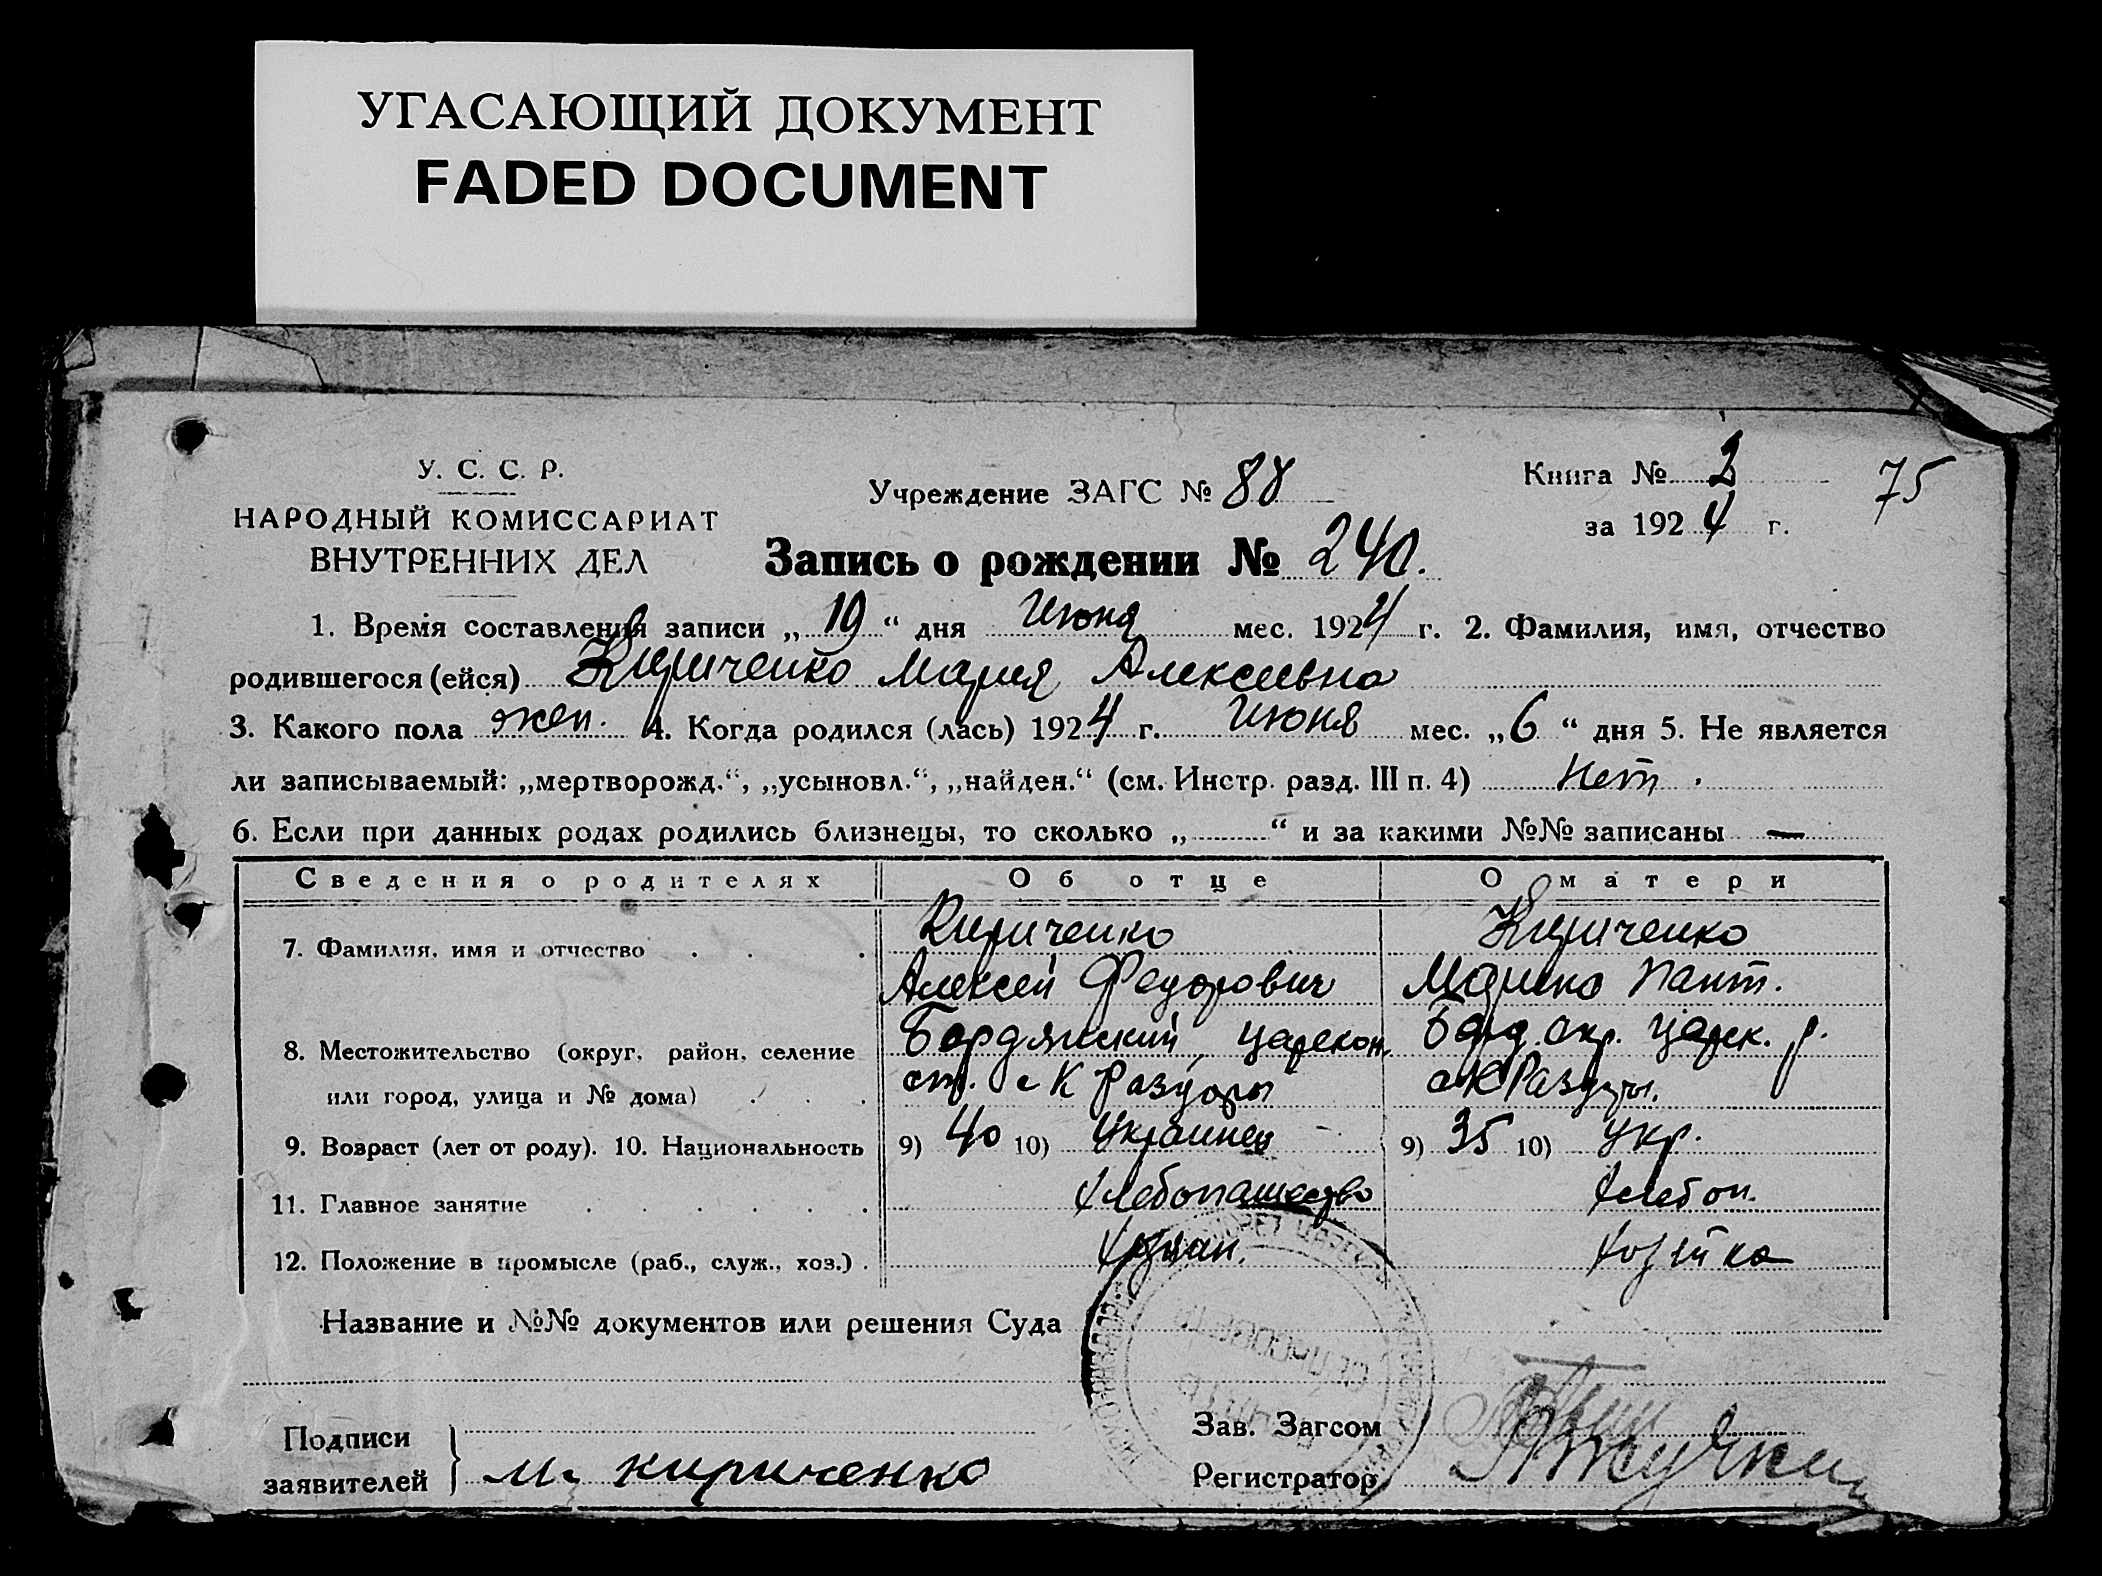 УГАСАЮЩИЙ ДОКУМЕНТ
FADED DOCUMENT
У. С. С. Р.
НАРОДНЫЙ КОМИССАРИАТ
ВНУТРЕННИХ ДЕЛ
Учреждение ЗАГС № 88
Книга № 2
за 1924 г.
75
Запись о рождении № 240.
1. Время составления записи „19“ дня Июня мес. 1924 г. 2. Фамилия, имя, отчество
родившегося (ейся) Кириченко Мария Алексеевна
3. Какого пола жен. 4. Когда родился (лась) 1924 г. Июня мес. „6“ дня 5. Не является
ли записываемый: „мертворожд.“, „усыновл.“, „найден.“ (см. Инстр. разд. III п. 4) Нет.
6. Если при данных родах родились близнецы, то сколько „ “ и за какими №№ записаны —
Сведения о родителях Об отце О матери
7. Фамилия, имя и отчество . . . Кириченко Кириченко
Алексей Федорович Марина Пант.
8. Местожительство (округ, район, селение Бордянский, Царекон. Борд. окр. Царек. р.
или город, улица и № дома) . . . с К Раздоры с К Раздоры.
9. Возраст (лет от роду). 10. Национальность 9) 40 10) Украинец 9) 35 10) Укр.
11. Главное занятие . . . . . . Хлебопашество Хлебоп.
12. Положение в промысле (раб., служ., хоз.) . Хозяин. Хозяйка
Название и №№ документов или решения Суда
СЕЛЬСОВЕТ
Подписи
заявителей
М. Кириченко
Зав. Загсом
Регистратор